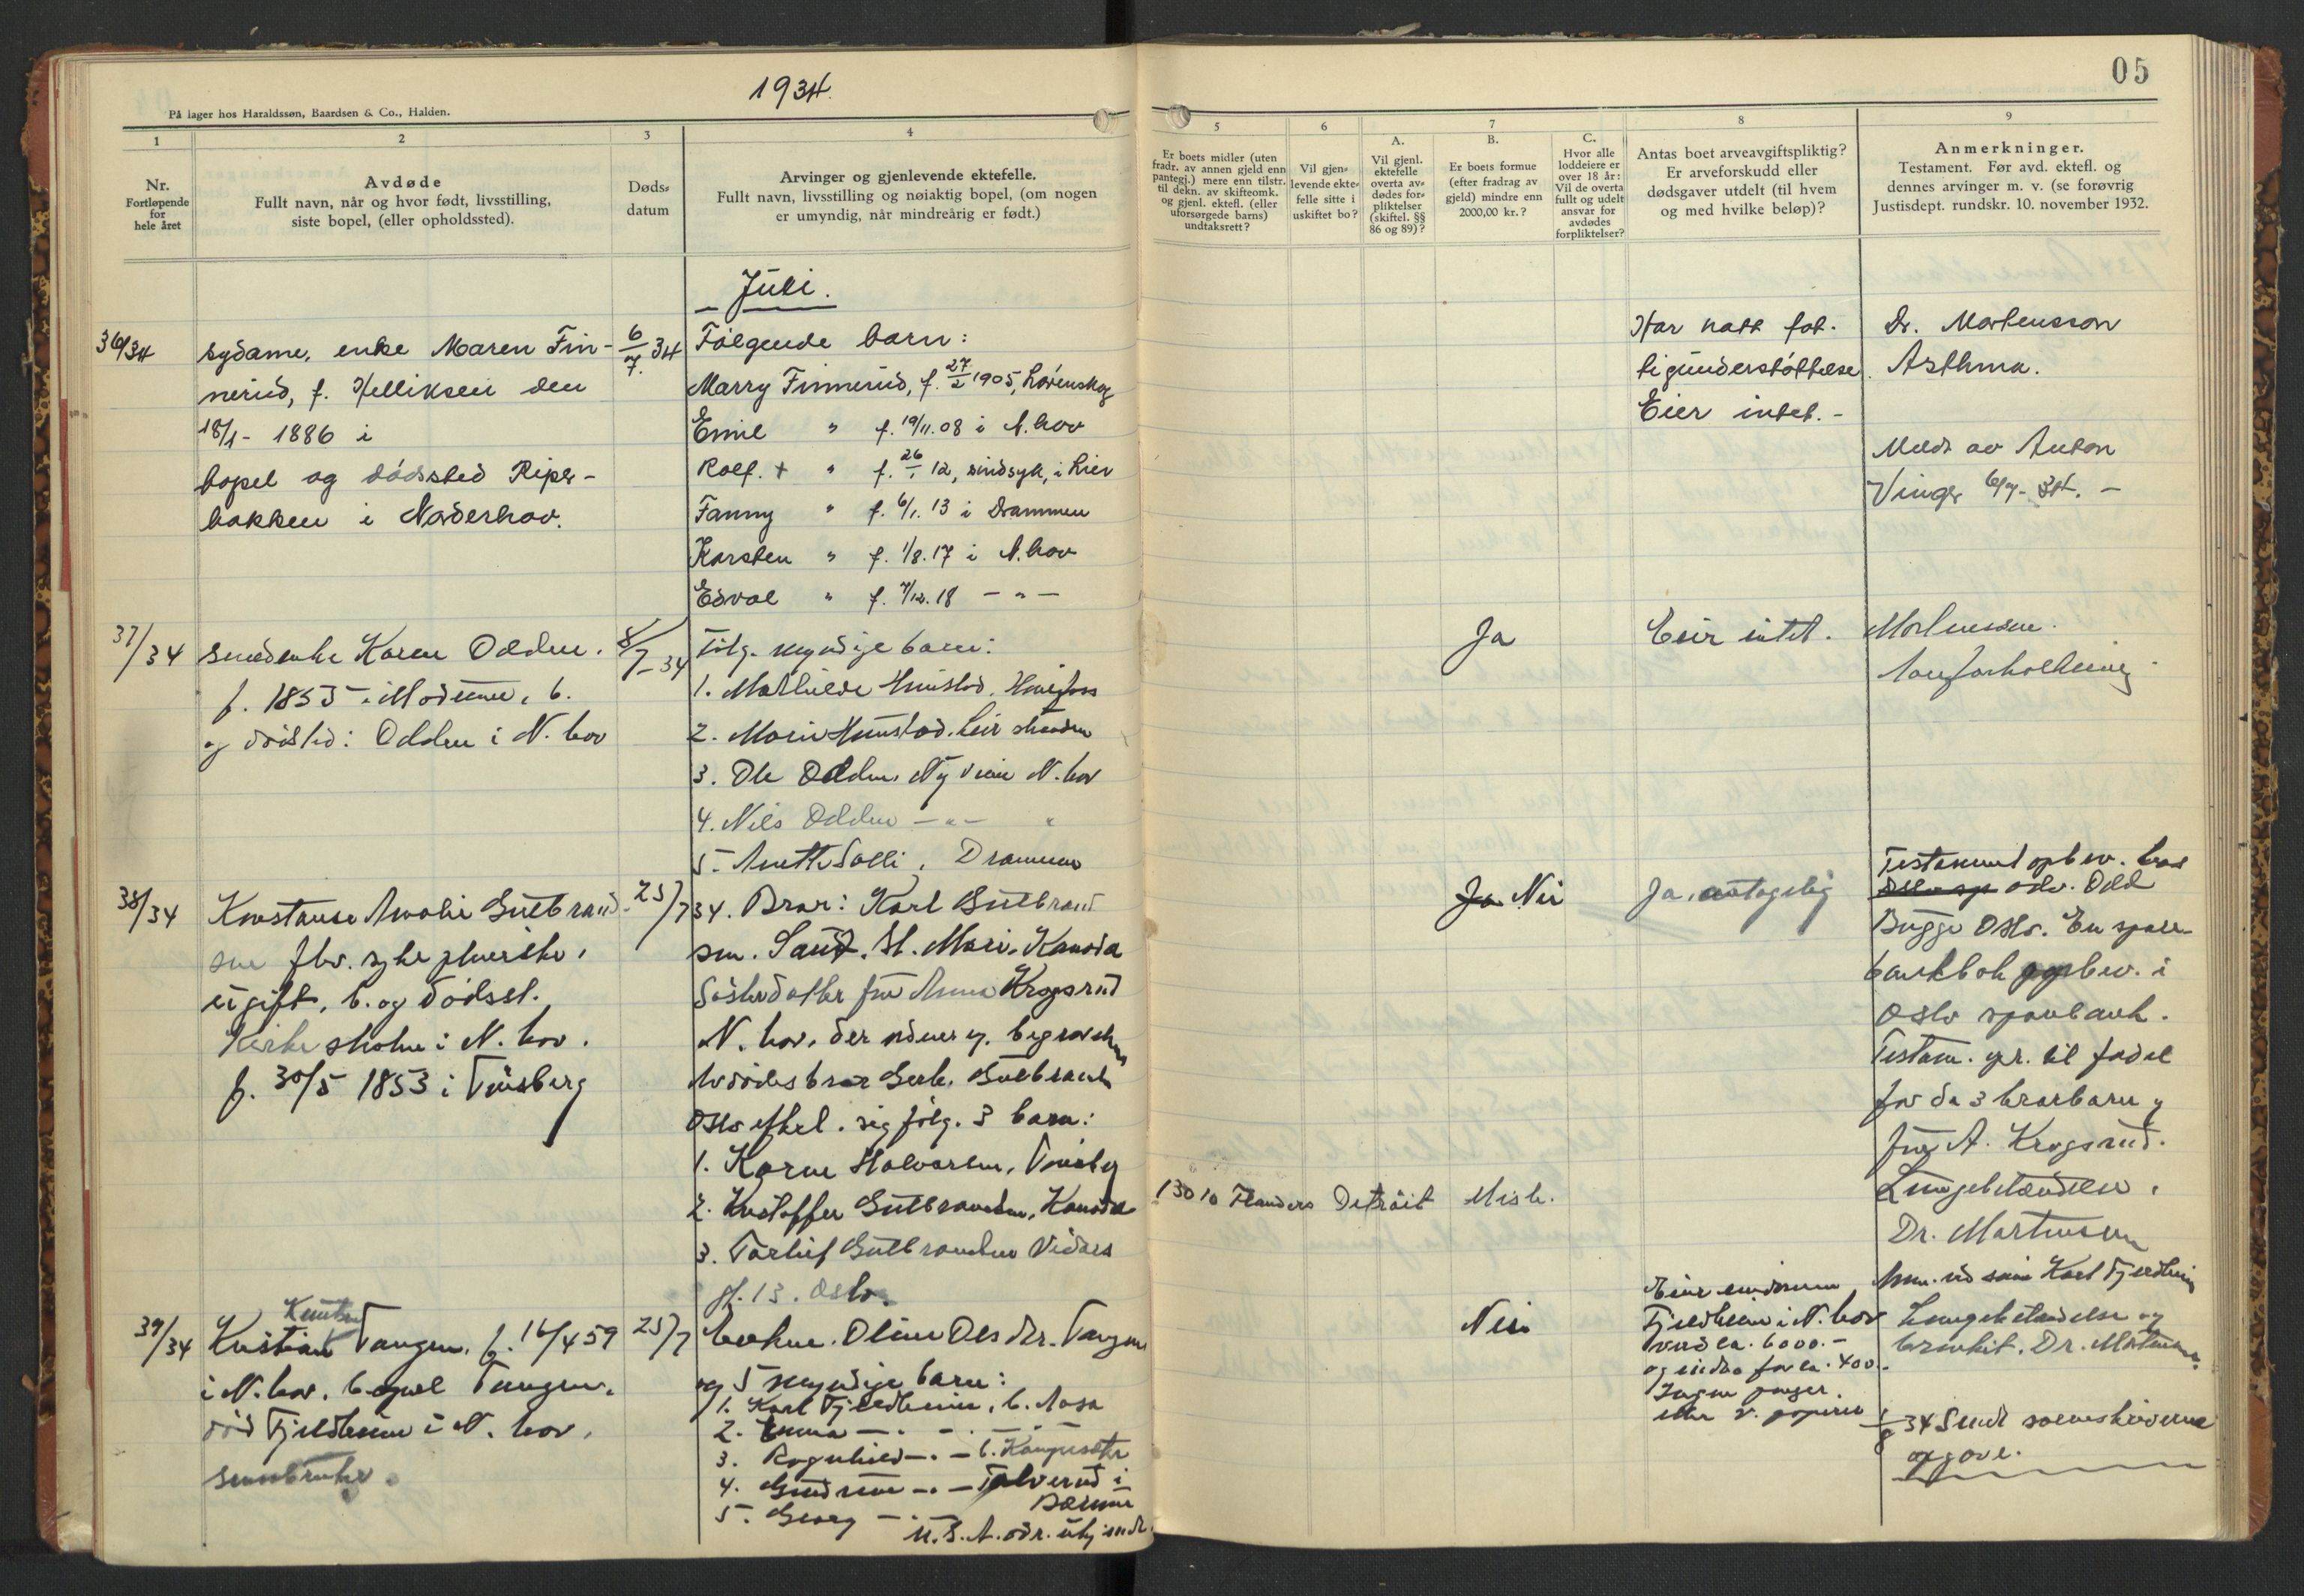 1934.
05
På lager hos Haraldssøn, Baardsen & Co., Halden.
1
Nr.
Fortløpende
for
hele året
2
Avdøde
Fullt navn, når og hvor født, livsstilling,
siste bopel, (eller opholdssted).
3
Døds-
datum
4
Arvinger og gjenlevende ektefelle.
Fullt navn, livsstilling og nøiaktig bopel, (om nogen
er umyndig, når mindreårig er født.)
5
Er boets midler (uten
fradr. av annen gjeld enn
pantegj.) mere enn tilstr.
til dekn. av skifteomk.
og gjenl. ektefl. (eller
uforsørgede barns)
undtaksrett?
6
Vil gjen-
levende ekte-
felle sitte i
uskiftet bo?
7
A.
Vil gjenl.
ektefelle
overta av-
dødes for-
pliktelser
(skiftel. §§
86 og 89)?
B.
Er boets formue
(efter fradrag av
gjeld) mindre enn
2000,00 kr.?
C.
Hvor alle
loddeiere er
over 18 år:
Vil de overta
fullt og udelt
ansvar for
avdødes
forpliktelser?
8
Antas boet arveavgiftspliktig?
Er arveforskudd eller
dødsgaver utdelt (til hvem
og med hvilke beløp)?
9
Anmerkninger.
Testament. Før avd. ektefl. og
dennes arvinger m. v. (se forøvrig
Justisdept. rundskr. 10. november 1932.
Juli.
36/34
sydame, enke Maren Fin-
nerud, f. Helliksen den
18/1- 1886 i
bopel og dødssted Riper-
bakken i Norderhov.
6/7.34
Følgende barn:
Marry Finnerud, f. 27/2 1905, Lørenskog
Emil " f. 19/11.08 i N.hov
Rolf. + " f. 26/1 12, sindsyk, i Lier
Fanny " f. 6/1.13 i Drammen
Karsten " f. 1/8.17 i N.hov
Edval " f. 7/12.18 - " -
Har hatt fat-
tigunderstøttelse.
Eier intet. -
Dr. Mortensson
Asthma.
Meldt av Anton
Vinger 6/7- 34. -
37/34
Karen Odden.
f. 1855 i Modum, b.
og dødssted: Odden i N.hov
8/7-34
Følg. myndige barn:
1. Mathilde Hunstad, Hønefoss
2. Marie Hunstad,
3. Ole Odden, N.hov
4. Nils Odden - " - "
5. Anette Solli, Drammen
Ja
Eier intet.
Mortensson.
38/34
Konstanse Amalie Gulbrand-
sen fhv. sykepleierske,
ugift, b. og dødsst.
i N.hov.
f. 30/5 1853 i Tønsberg
25/7 34.
Bror: Karl Gulbrand
sen. Sault. St. Mari, Kanada
Søsterdatter fru Anna Krogsrud
N.hov, der ordner og. begravelsen
Avdødes bror Gulbrandsen
Oslo efterl. sig følg. 3 barn:
1. Karen Halvorsen, Tønsberg
2. Kristoffer Gulbrandsen, Kanada
3. Torleif Gulbrandsen Vidars
gt. 13. Oslo.
13010 Flanders Detroit Mish.
Ja Nei
Ja, antagelig
Testament opbev. hos
adv. Odd
Bugge Oslo. En spare-
bankbok opbev. i
Oslo sparebank.
Testam. gr. til fordel
for de 3 brorbarn og
fru A. Krogsrud.
Lungebetændelse.
Dr. Mortensson
39/34
Knutsen
Kristian Tangen, f. 16/4 59
i N.hov, bopel Tangen,
død Fjeldheim i N.hov,
25/7
Enke. Oline Olsdtr. Tangen
og 5 myndige barn:
1. Karl Fjeldheim, b. Aasa
2. Emma - " -
3. Ragnhild - " -
4. Gudrun - " - i
Bærum
5. Georg - " -
U.S.A. adr. ubekjendt.
Nei
Eier eiendommen
Fjeldheim i N.hov
verd ca. 6000.-
og indbo for ca. 400.-
Ingen penger
eller v. papirer
Anm. ved sønn Karl Fjeldheim
Lungebetændelse og
bronkit. Dr. Mortensson.
1/8 34 Sendt sorenskriveren
opgave.